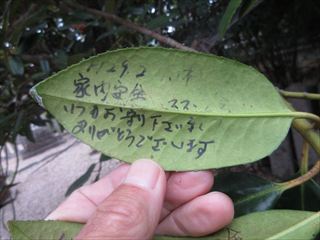 29.2
家内安全
いつもお守り下さいまし
ありがとうございます